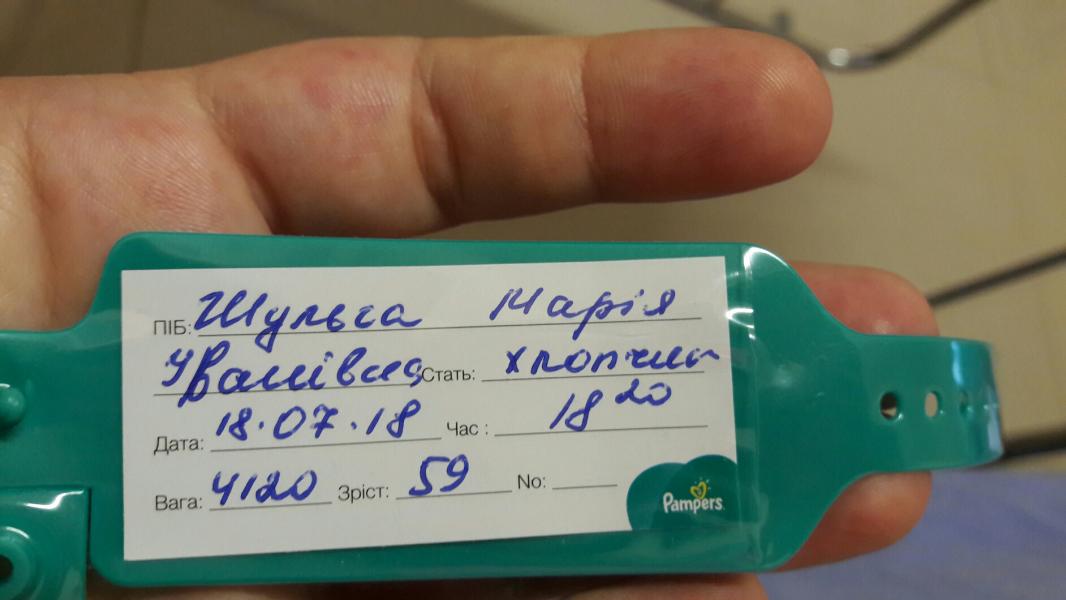 ПІБ: Шульга Марія
Іванівна Стать: хлопчик
Дата: 18.07.18 Час : 18 20
Вага: 4120 Зріст: 59 No:
Pampers